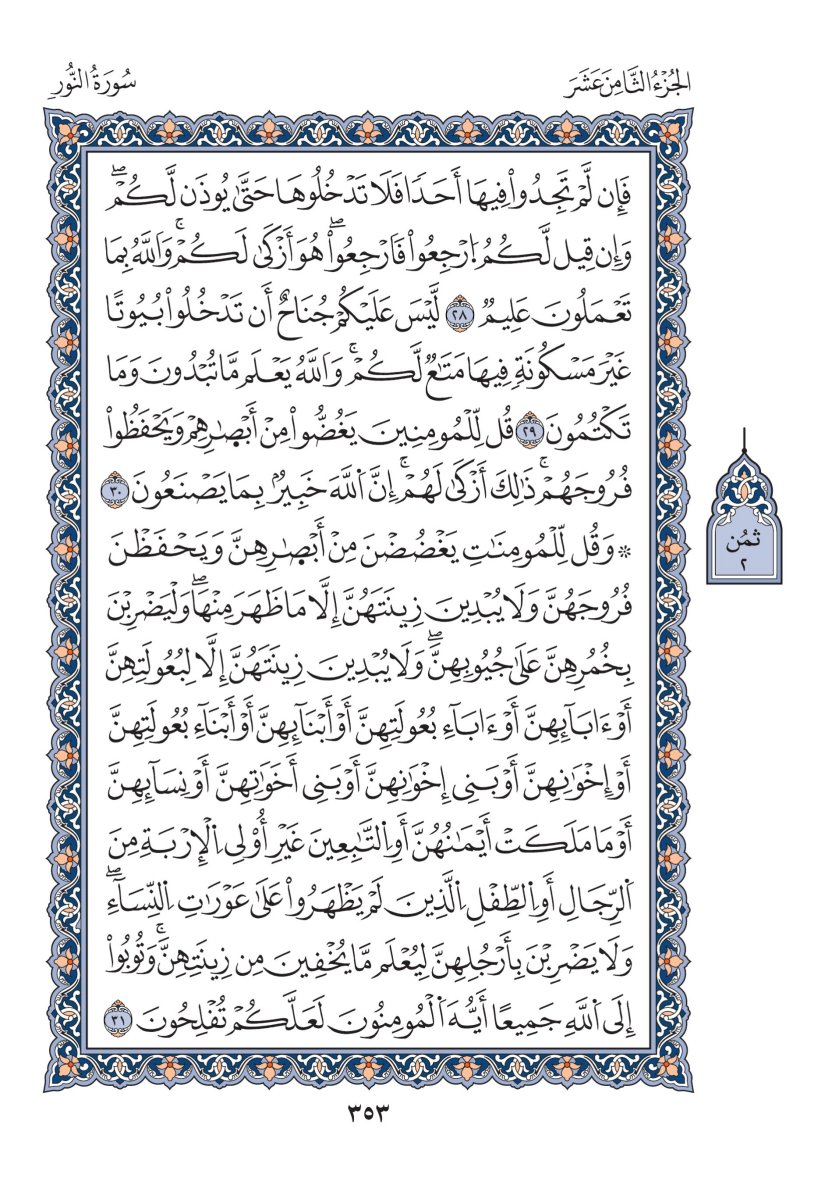 الجُزْءُ الثَّامِنَ عَشَرَ
سُورَةُ النُّورِ
فَإِن لَّمْ تَجِدُواْ فِيهَا أَحَدًا فَلَا تَدْخُلُوهَا حَتَّىٰ يُوذَن لَّكُمْۖ
وَإِن قِيل لَّكُمُ اِرْجِعُواْ فَارْجِعُواْۖ هُوَ أَزْكَىٰ لَكُمْۚ وَاَللَّهُ بِمَا
تَعْمَلُونَ عَلِيمٌ ٢٨ لَّيْسَ عَلَيْكُمْ جُنَاحٌ أَن تَدْخُلُواْ بُيُوتًا
غَيْرَ مَسْكُونَةٍ فِيهَا مَتَٰعٌ لَّكُمْۚ وَاَللَّهُ يَعْلَم مَّا تُبْدُونَ وَمَا
تَكْتُمُونَ ٢٩ قُل لِّلْمُومِنِينَ يَغُضُّواْ مِنْ أَبْصٰ۪رِهِمْ وَيَحْفَظُواْ
فُرُوجَهُمْۚ ذَٰلِكَ أَزْكَىٰ لَهُمْۚ إِنَّ اَللَّهَ خَبِيرُۢ بِمَا يَصْنَعُونَ ٣٠
۞ وَقُل لِّلْمُومِنَٰتِ يَغْضُضْنَ مِنْ أَبْصٰ۪رِهِنَّ وَيَحْفَظْنَ
فُرُوجَهُنَّ وَلَا يُبْدِينَ زِينَتَهُنَّ إِلَّا مَا ظَهَرَ مِنْهَاۖ وَلْيَضْرِبْنَ
بِخُمُرِهِنَّ عَلَىٰ جُيُوبِهِنَّۖ وَلَا يُبْدِينَ زِينَتَهُنَّ إِلَّا لِبُعُولَتِهِنَّ
أَوْ ءَابَآئِهِنَّ أَوْ ءَابَآءِ بُعُولَتِهِنَّ أَوْ أَبْنَآئِهِنَّ أَوْ أَبْنَآءِ بُعُولَتِهِنَّ
أَوْ إِخْوَٰنِهِنَّ أَوْ بَنِي إِخْوَٰنِهِنَّ أَوْ بَنِي أَخَوَٰتِهِنَّ أَوْ نِسَآئِهِنَّ
أَوْ مَا مَلَكَتْ أَيْمَٰنُهُنَّ أَوِ اِلتَّٰبِعِينَ غَيْرِ أُوْلِي اِلْإِرْبَةِ مِنَ
اَلرِّجَالِ أَوِ اِلطِّفْلِ اِلَّذِينَ لَمْ يَظْهَرُواْ عَلَىٰ عَوْرَٰتِ اِلنِّسَآءِۖ
وَلَا يَضْرِبْنَ بِأَرْجُلِهِنَّ لِيُعْلَم مَّا يُخْفِينَ مِن زِينَتِهِنَّۚ وَتُوبُواْ
إِلَى اَللَّهِ جَمِيعًا أَيُّهَ اَلْمُومِنُونَ لَعَلَّكُمْ تُفْلِحُونَ ٣١
ثُمُن
٢
٣٥٣